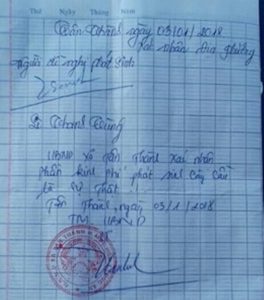 Thứ Ngày Tháng Năm
Tân Thành ngày 03/01/2018
Xác nhận địa phương
Người đề nghị phát sinh
Lê Thanh Dũng
UBND xã Tân Thành xác nhận
phần kinh phí phát sinh cây cầu
là sự thật.
Tân Thành, ngày 03/1/2018
TM. UBND